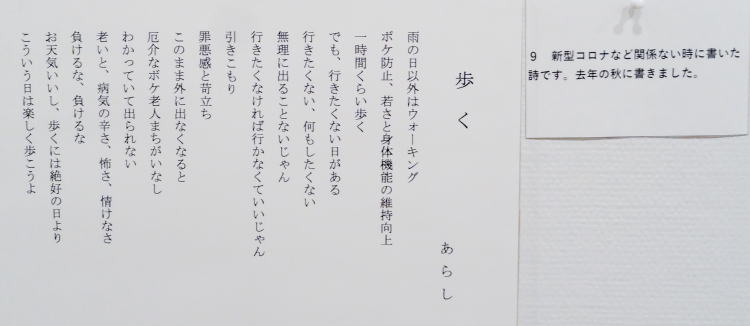 歩く
あらし
雨の日以外はウォーキング
ボケ防止、若さと身体機能の維持向上
一時間くらい歩く
でも、行きたくない日がある
行きたくない、何もしたくない
無理に出ることないじゃん
行きたくなければ行かなくていいじゃん
引きこもり
罪悪感と苛立ち
このまま外に出なくなると
厄介なボケ老人まちがいなし
わかっていて出られない
老いと、病気の辛さ、怖さ、情けなさ
負けるな、負けるな
お天気いいし、歩くには絶好の日より
こういう日は楽しく歩こうよ
9　新型コロナなど関係ない時に書いた
詩です。去年の秋に書きました。